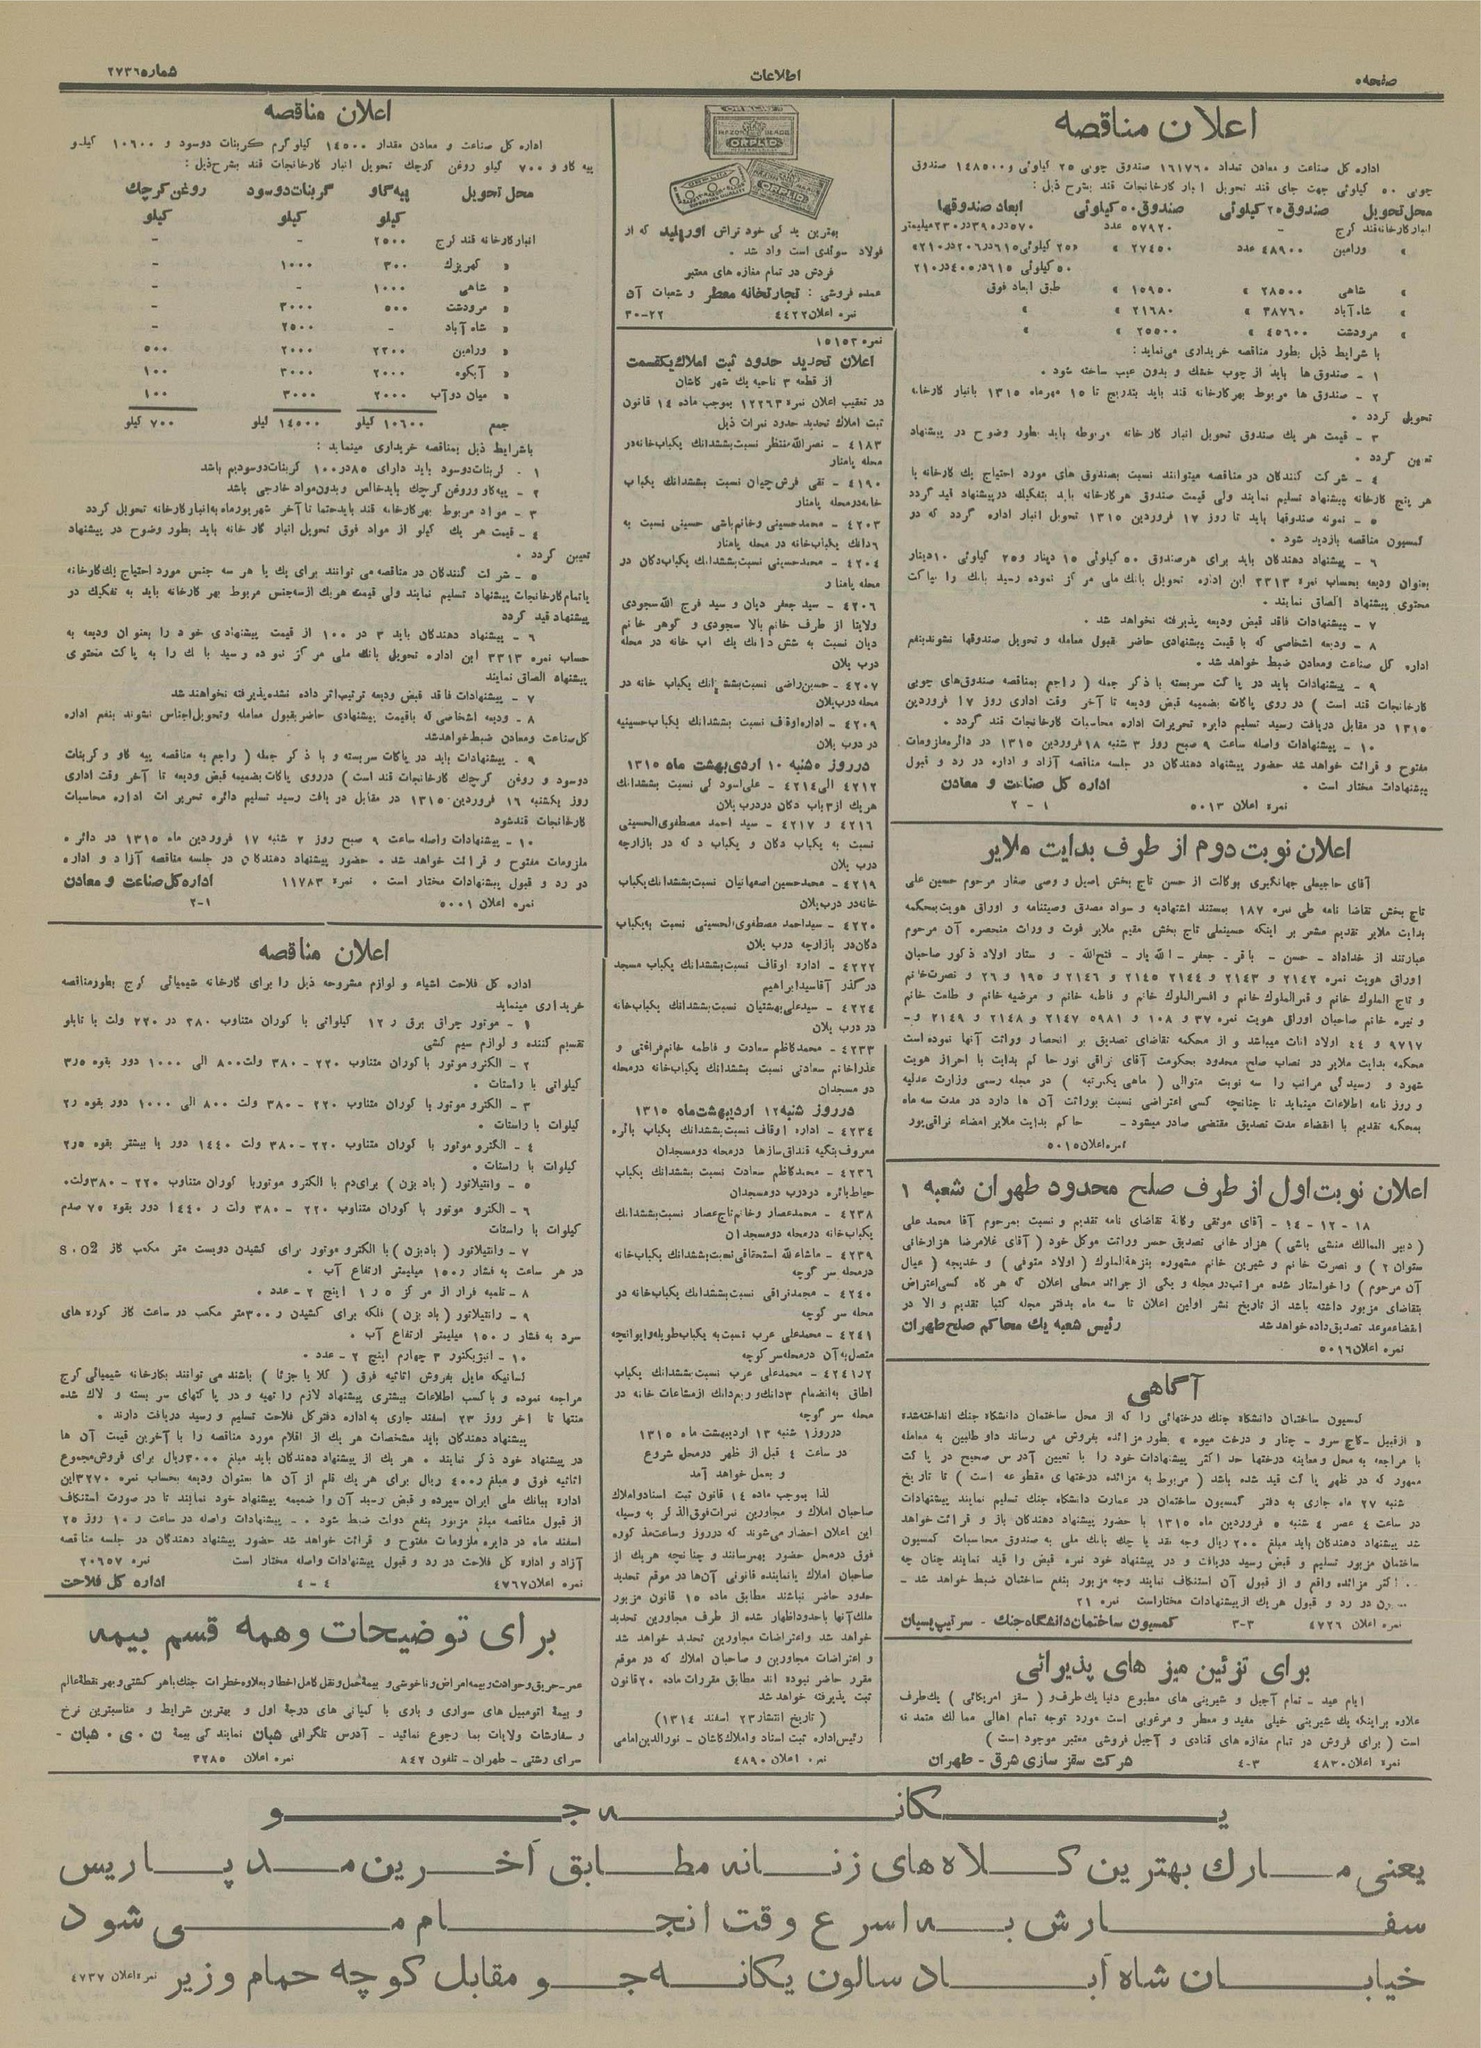 صفحه ۵
اطلاعات
شماره ۲۷۳۶
اعلان مناقصه
اداره کل صناعت و معادن تعداد ۱۶۱۷۶۰ صندوق چوبی ۲۵ کیلوئی و ۱۴۸۵۰۰ صندوق
چوبی ۵۰ کیلوئی جهت جای قند تحویل انبار کارخانجات قند بشرح ذیل:
محل تحویل صندوق ۲۵ کیلوئی صندوق ۵۰ کیلوئی ابعاد صندوقها
انبار کارخانه قند کرج - ۵۷۹۲۰ عدد ۵۷۰ در ۳۹۰ در ۲۳۰ میلیمتر
» ورامین ۴۸۹۰۰ عدد ۲۷۴۵۰ » ۲۵» کیلوئی ۶۱۵ در ۲۰۶ در ۲۱۰»
۵۰ کیلوئی ۶۱۵ در ۴۰۰ در ۲۱۰
» شاهی ۲۸۵۰۰ » ۱۵۹۵۰ » طبق ابعاد فوق
» شاه آباد ۳۸۷۶۰ » ۲۱۶۸۰ » »
» مرودشت ۴۵۶۰۰ » ۲۵۵۰۰ » »
با شرایط ذیل بطور مناقصه خریداری می‌نماید:
۱ - صندوق ها باید از چوب خشک و بدون عیب ساخته شود.
۲ - صندوق ها مربوط بهر کارخانه قند باید بتدریج تا ۱۵ مهرماه ۱۳۱۵ بانبار کارخانه
تحویل گردد.
۳ - قیمت هر یک صندوق تحویل انبار کارخانه مربوطه باید بطور وضوح در پیشنهاد
تعیین گردد.
۴ - شرکت کنندگان در مناقصه میتوانند نسبت بصندوق های مورد احتیاج یک کارخانه یا
هر پنج کارخانه پیشنهاد تسلیم نمایند ولی قیمت صندوق هر کارخانه باید بتفکیک در پیشنهاد قید گردد
۵ - نمونه صندوقها باید تا روز ۱۷ فروردین ۱۳۱۵ تحویل انبار اداره گردد که در
کمسیون مناقصه بازدید شود.
۶ - پیشنهاد دهندگان باید برای هر صندوق ۵۰ کیلوئی ۱۵ دینار و ۲۵ کیلوئی ۱۰ دینار
بعنوان ودیعه بحساب نمره ۳۳۱۳ این اداره تحویل بانک ملی مرکز نموده رسید بانک را بپاکت
محتوی پیشنهاد الصاق نمایند.
۷ - پیشنهادات فاقد قبض ودیعه پذیرفته نخواهد شد.
۸ - ودیعه اشخاصی که با قیمت پیشنهادی حاضر بقبول معامله و تحویل صندوقها نشوند بنفع
اداره کل صناعت و معادن ضبط خواهد شد.
۹ - پیشنهادات باید در پاکت سربسته با ذکر جمله ( راجع بمناقصه صندوق‌های چوبی
کارخانجات قند است ) در روی پاکات بضمیمه قبض ودیعه تا آخر وقت اداری روز ۱۷ فروردین
۱۳۱۵ در مقابل دریافت رسید تسلیم دایره تحریرات اداره محاسبات کارخانجات قند گردد.
۱۰ - پیشنهادات واصله ساعت ۹ صبح روز ۳ شنبه ۱۸ فروردین ۱۳۱۵ در دائره ملزومات
مفتوح و قرائت خواهد شد حضور پیشنهاد دهندگان در جلسه مناقصه آزاد و اداره در رد و قبول
پیشنهادات مختار است.
اداره کل صناعت و معادن
نمره اعلان ۵۰۱۳ ۱ - ۲
اعلان نوبت دوم از طرف بدایت ملایر
آقای حاجیعلی جهانگیری بوکالت از حسن تاج بخش اصیل و وصی صغار مرحوم حسین علی
تاج بخش تقاضا نامه طی نمره ۱۸۷ بمستند اشتهادیه و سواد مصدق وصیتنامه و اوراق هویت بمحکمه
بدایت ملایر تقدیم مشعر بر اینکه حسینعلی تاج بخش مقیم ملایر فوت و وراث منحصره آن مرحوم
عبارتند از خداداد - حسن - باقر - جعفر - الله یار - فتح‌الله - و ستار اولاد ذکور صاحبان
اوراق هویت نمره ۲۱۴۲ و ۲۱۴۳ و ۲۱۴۴ و ۲۱۴۵ و ۲۱۴۶ و ۱۹۵ و ۲۶ و نصرت خانم
و تاج الملوک خانم و قمرالملوک خانم و افسرالملوک خانم و فاطمه خانم و مرضیه خانم و طلعت خانم
و نیره خانم صاحبان اوراق هویت نمره ۳۷ و ۱۰۸ و ۵۹۸۱ و ۲۱۴۷ و ۲۱۴۸ و ۲۱۴۹ و -
۹۷۱۷ و ۴۴ اولاد اناث میباشد و از محکمه تقاضای تصدیق بر انحصار وراثت آنها نموده است
محکمه بدایت ملایر در نصاب صلح محدود بحکومت آقای نراقی پور حاکم بدایت با احراز هویت
شهود و رسیدگی مراتب را سه نوبت متوالی ( ماهی یکمرتبه ) در مجله رسمی وزارت عدلیه
و روزنامه اطلاعات مینماید تا چنانچه کسی اعتراضی نسبت بوراثت آن ها دارد در مدت سه ماه
بمحکمه تقدیم با انقضاء مدت تصدیق مقتضی صادر میشود - حاکم بدایت ملایر امضاء نراقی پور
نمره اعلان ۵۰۱۵
اعلان نوبت اول از طرف صلح محدود طهران شعبه ۱
۱۸ - ۱۲ - ۱۴ - آقای موثقی وکالة تقاضای نامه تقدیم و نسبت بمرحوم آقا محمد علی
( دبیر الممالک منشی باشی ) هزار خانی تصدیق حصر وراثت موکل خود ( آقای غلامرضا هزارخانی
ستوان ۲ ) و نصرت خانم و شیرین خانم مشهوره بنزهة‌الملوک ( اولاد متوفی ) و خدیجه ( عیال
آن مرحوم ) را خواستار شده مراتب در مجله و یکی از جرائد محلی اعلان که هر گاه کسی اعتراض
بتقاضای مزبور داشته باشد از تاریخ نشر اولین اعلان تا سه ماه بدفتر محکمه کتبا تقدیم و الا در
انقضاء موعد تصدیق داده خواهد شد رئیس شعبه یک محاکم صلح طهران
نمره اعلان ۵۰۱۶
آگاهی
کمسیون ساختمان دانشگاه جنگ درختهائی را که از محل ساختمان دانشگاه جنگ انداخته شده
« ازقبیل - کاج سرو - چنار و درخت میوه » بطور مزائده بفروش می رساند داوطلبین به معامله
با مراجعه به محل و معاینه درختها حد اکثر پیشنهادات خود را با تعیین آدرس صحیح در پاکت
ممهور که در ظهر پاکت قید شده باشد ( مربوط به مزائده درختهای مقطوعه است ) تا تاریخ
شنبه ۲۷ ماه جاری به دفتر کمسیون ساختمان در عمارت دانشگاه جنگ تسلیم نمایند پیشنهادات
در ساعت ۴ عصر ۴ شنبه ۵ فروردین ماه ۱۳۱۵ با حضور پیشنهاد دهندگان باز و قرائت خواهد
شد پیشنهاد دهندگان باید مبلغ ۲۰۰ ریال وجه نقد یا چک بانک ملی به صندوق محاسبات کمسیون
ساختمان مزبور تسلیم و قبض رسید دریافت و در پیشنهاد خود نمره قبض را قید نمایند چنان چه
اکثر مزائده واقع و از قبول آن استنکاف نمایند وجه مزبور بنفع ساختمان ضبط خواهد شد -
در رد و قبول هر یک از پیشنهادات مختار است نمره ۲۱
نمره اعلان ۴۷۲۶ ۳-۳ کمسیون ساختمان دانشگاه جنگ - سرتیپ پسیان
برای تزئین میز های پذیرائی
ایام عید - تمام آجیل و شیرینی های مطبوع دنیا یکطرف و ( سقز امریکائی ) یکطرف
علاوه براینکه یک شیرینی خیلی مفید و معطر و مرغوبی است مورد توجه تمام اهالی ممالک متمدنه
است ( برای فروش در تمام مغازه های قنادی و آجیل فروشی معتبر موجود است )
نمره اعلان ۴۸۳۰ ۳-۴ شرکت سقز سازی شرق - طهران
ORPLID
بهترین یدکی خود تراش اورپلید که از
فولاد سوئدی است واد شد.
فروش در تمام مغازه های معتبر
عمده فروشی: تجارتخانه معطر و شعبات آن
نمره اعلان ۴۴۲۲ ۲۲-۳۰
نمره ۱۵۱۵۳
اعلان تحدید حدود ثبت املاک یکقسمت
از قطعه ۳ ناحیه یک شهر کاشان
در تعقیب اعلان نمره ۱۲۲۶۳ بموجب ماده ۱۴ قانون
ثبت املاک تحدید حدود نمرات ذیل
۴۱۸۳ - نصرالله منتظر نسبت بششدانک یکباب خانه در
محله پامنار
۴۱۹۰ - تقی فرش چیان نسبت بششدانک یکباب
خانه در محله پامنار
۴۲۰۳ - محمد حسینی و خانم باشی حسینی نسبت به
۶ دانک یکباب خانه در محله پامنار
۴۲۰۴ - محمد حسینی نسبت بششدانک یکباب دکان در
محله پامنار
۴۲۰۶ - سید جعفر دیان و سید فرج الله سجودی
ولایتا از طرف خانم بالا سجودی و گوهر خانم
دیان نسبت به شش دانک یک باب خانه در محله
درب یلان
۴۲۰۷ - حسین راضی نسبت بششدانک یکباب خانه در
محله درب یلان
۴۲۰۹ - اداره اوقاف نسبت بششدانک یکباب حسینیه
در درب یلان
در روز ۵ شنبه ۱۰ اردی بهشت ماه ۱۳۱۵
۴۲۱۲ الی ۴۲۱۴ - علی اسودی نسبت بششدانک
هر یک از ۳ باب دکان در درب یلان
۴۲۱۶ و ۴۲۱۷ - سید احمد مصطفوی الحسینی
نسبت به یکباب دکان و یکباب دکه در بازارچه
درب یلان
۴۲۱۹ - محمد حسین اصفهانیان نسبت بششدانک یکباب
خانه در درب یلان
۴۲۲۰ - سید احمد مصطفوی الحسینی نسبت به یکباب
دکان در بازارچه درب یلان
۴۲۲۲ - اداره اوقاف نسبت بششدانک یکباب مسجد
در گذر آقا سید ابراهیم
۴۲۲۴ - سید علی بهشتیان نسبت بششدانک یکباب خانه
در درب یلان
۴۲۳۳ - محمد کاظم سعادت و فاطمه خانم فراقتی و
عذرا خانم سعادتی نسبت بششدانک یکباب خانه در محله
دو مسجدان
در روز شنبه ۱۲ اردیبهشت ماه ۱۳۱۵
۴۲۳۴ - اداره اوقاف نسبت بششدانک یکباب بائره
معروف بتکیه قنداق سازها در محله دو مسجدان
۴۲۳۶ - محمد کاظم سعادت نسبت بششدانک یکباب
حیاط بائره در درب دو مسجدان
۴۲۳۸ - محمد عصار و خانم تاج عصار نسبت بششدانک
یکباب خانه در محله دو مسجدان
۴۲۳۹ - ماشاءالله استحقاقی نسبت بششدانک یکباب خانه
در محله سر کوچه
۴۲۴۰ - محمد نراقی نسبت بششدانک یکباب خانه در
محله سر کوچه
۴۲۴۱ - محمد علی عرب نسبت به یکباب طویله و ایوانچه
متصل به آن در محله سر کوچه
۴۲۴۱ر۲ - محمد علی عرب نسبت بششدانک یکباب
اطاق به انضمام ۳ دانک و ربع دانک از مشاعات خانه در
محله سر کوچه
در روز ۱ شنبه ۱۳ اردیبهشت ماه ۱۳۱۵
در ساعت ۴ قبل از ظهر در محل شروع
و بعمل خواهد آمد
لذا بموجب ماده ۱۴ قانون ثبت اسناد و املاک
صاحبان املاک و مجاورین نمرات فوق الذکر به وسیله
این اعلان احضار می‌شوند که در روز و ساعت مذکوره
فوق در محل حضور بهمرسانند و چنانچه هر یک از
صاحبان املاک یا نماینده قانونی آن‌ها در موقع تحدید
حدود حاضر نباشند مطابق ماده ۱۵ قانون مزبور
ملک آنها با حدود اظهار شده از طرف مجاورین تحدید
خواهد شد و اعتراضات مجاورین تحدید خواهد شد
و اعتراضات مجاورین و صاحبان املاک که در موقع
مقرر حاضر نبوده اند مطابق مقررات ماده ۲۰ قانون
ثبت پذیرفته خواهد شد
( تاریخ انتشار ۲۳ اسفند ۱۳۱۴ )
رئیس اداره ثبت اسناد و املاک کاشان - نورالدین امامی
نمره اعلان ۴۸۹۰
اعلان مناقصه
اداره کل صناعت و معادن مقدار ۱۴۵۰۰ کیلو گرم کربنات دوسود و ۱۰۶۰۰ کیلو
پیه گاو و ۷۰۰ کیلو روغن کرچک تحویل انبار کارخانجات قند بشرح ذیل:
محل تحویل پیه گاو گربنات دوسود روغن کرچک
کیلو کیلو کیلو
انبار کارخانه قند کرج ۲۵۰۰ - -
» کهریزک ۳۰۰ ۱۰۰۰ -
» شاهی ۱۰۰۰ - -
» مرودشت ۵۰۰ ۳۰۰۰ -
» شاه آباد - ۲۵۰۰ -
» ورامین ۲۳۰۰ ۲۰۰۰ ۵۰۰
» آبکوه ۲۰۰۰ ۳۰۰۰ ۱۰۰
» میان دوآب ۲۰۰۰ ۳۰۰۰ ۱۰۰
جمع ۱۰۶۰۰ کیلو ۱۴۵۰۰ کیلو ۷۰۰ کیلو
باشرایط ذیل بمناقصه خریداری مینماید:
۱ - کربنات دوسود باید دارای ۸۵ در ۱۰۰ کربنات دوسدیم باشد
۲ - پیه گاو و روغن کرچک باید خالص و بدون مواد خارجی باشد
۳ - مواد مربوط بهر کارخانه قند باید حتما تا آخر شهریور ماه به انبار کارخانه تحویل گردد
۴ - قیمت هر یک کیلو از مواد فوق تحویل انبار کارخانه باید بطور وضوح در پیشنهاد
تعیین گردد.
۵ - شرکت کنندگان در مناقصه می توانند برای یک یا هر سه جنس مورد احتیاج یک کارخانه
یا تمام کارخانجات پیشنهاد تسلیم نمایند ولی قیمت هر یک از سه جنس مربوط بهر کارخانه باید به تفکیک در
پیشنهاد قید گردد
۶ - پیشنهاد دهندگان باید ۳ در ۱۰۰ از قیمت پیشنهادی خود را بعنوان ودیعه به
حساب نمره ۳۳۱۳ این اداره تحویل بانک ملی مرکز نموده رسید بانک را به پاکت محتوی
پیشنهاد الصاق نمایند
۷ - پیشنهادات فاقد قبض ودیعه ترتیب اثر داده نشده پذیرفته نخواهند شد
۸ - ودیعه اشخاصی که باقیمت پیشنهادی حاضر بقبول معامله و تحویل اجناس نشوند بنفع اداره
کل صناعت و معادن ضبط خواهد شد
۹ - پیشنهادات باید در پاکات سربسته و با ذکر جمله ( راجع به مناقصه پیه گاو و کربنات
دوسود و روغن کرچک کارخانجات قند است ) در روی پاکات بضمیمه قبض ودیعه تا آخر وقت اداری
روز یکشنبه ۱۶ فروردین ۱۳۱۵ در مقابل دریافت رسید تسلیم دائره تحریرات اداره محاسبات
کارخانجات قند شود
۱۰ - پیشنهادات واصله ساعت ۹ صبح روز ۲ شنبه ۱۷ فروردین ماه ۱۳۱۵ در دائره
ملزومات مفتوح و قرائت خواهد شد. حضور پیشنهاد دهندگان در جلسه مناقصه آزاد و اداره
در رد و قبول پیشنهادات مختار است. نمره ۱۱۷۸۳ اداره کل صناعت و معادن
نمره اعلان ۵۰۰۱ ۱-۲
اعلان مناقصه
اداره کل فلاحت اشیاء و لوازم مشروحه ذیل را برای کارخانه شیمیائی کرج بطور مناقصه
خریداری مینماید
۱ - موتور چراق برق ۱۲ کیلواتی با کوران متناوب ۳۸۰ در ۲۲۰ ولت با تابلو
تقسیم کننده و لوازم سیم کشی
۲ - الکترو موتور با کوران متناوب ۲۲۰ - ۳۸۰ ولت ۸۰۰ الی ۱۰۰۰ دور بقوه ۳ر۵
کیلواتی با راستات.
۳ - الکترو موتور با کوران متناوب ۲۲۰ - ۳۸۰ ولت ۸۰۰ الی ۱۰۰۰ دور بقوه ۲ر
کیلوات با راستات.
۴ - الکترو موتور با کوران متناوب ۲۲۰ - ۳۸۰ ولت ۱۴۴۰ دور یا بیشتر بقوه ۲ر۵
کیلوات با راستات.
۵ - وانتیلاتور ( باد بزن ) برای دم با الکترو موتور با کوران متناوب ۲۲۰ - ۳۸۰ ولت.
۶ - الکترو موتور با کوران متناوب ۲۲۰ - ۳۸۰ ولت و ۱۴۴۰ دور بقوه ۷۵ صدم
کیلوات با راستات
۷ - وانتیلاتور ( بادبزن ) با الکترو موتور برای کشیدن دویست متر مکعب گاز s.o2
در هر ساعت به فشار ۱۵۰ میلیمتر ارتفاع آب.
۸ - تلمبه فرار از مرکز ۵ر۱ اینچ ۲ - عدد.
۹ - وانتیلاتور ( باد بزن ) فلکه برای کشیدن ۳۰۰ متر مکعب در ساعت گاز کوره های
سرد به فشار ۱۵۰ میلیمتر ارتفاع آب.
۱۰ - انژیکتور ۳ چهارم اینچ ۲ - عدد.
کسانیکه مایل بفروش اثاثیه فوق ( کلا یا جزئا ) باشند می توانند بکارخانه شیمیائی کرج
مراجعه نموده و باکسب اطلاعات بیشتری پیشنهاد لازم را تهیه و در پاکتهای سر بسته و لاک شده
منتها تا آخر روز ۲۳ اسفند جاری به اداره دفتر کل فلاحت تسلیم و رسید دریافت دارند.
پیشنهاد دهندگان باید مشخصات هر یک از اقلام مورد مناقصه را با آخرین قیمت آن ها
در پیشنهاد خود ذکر نمایند. هر یک از پیشنهاد دهندگان باید مبلغ ۳۰۰۰ ریال برای فروش مجموع
اثاثیه فوق و مبلغ ۴۰۰ ریال برای هر یک قلم از آن ها بعنوان ودیعه بحساب نمره ۳۲۷۰ این
اداره ببانک ملی ایران سپرده و قبض رسید آن را ضمیمه پیشنهاد خود نمایند تا در صورت استنکاف
از قبول مناقصه مبلغ مزبور بنفع دولت ضبط شود. - پیشنهادات واصله در ساعت ۱۰ روز ۲۵
اسفند ماه در دایره ملزومات مفتوح و قرائت خواهد شد حضور پیشنهاد دهندگان در جلسه مناقصه
آزاد و اداره کل فلاحت در رد و قبول پیشنهادات واصله مختار است نمره ۲۰۶۵۷
نمره اعلان ۴۷۶۷ ۴ - ۴ اداره کل فلاحت
برای توضیحات وهمه قسم بیمه
عمر - حریق و حوادث و بیمه امراض و ناخوشی و بیمه حمل و نقل کامل اخطار به علاوه خطرات جنگ باهر کشتی و بهر نقطه عالم
و بیمهٔ اتومبیل های سواری و باری با کمپانی های درجهٔ اول و بهترین شرایط و مناسبترین نرخ
و سفارشات ولایات بما رجوع نمائید - آدرس تلگرافی شبان نمایندگی بیمهٔ ن.ی. شبان -
سرای رشتی - طهران - تلفون ۸۴۲ نمره اعلان ۳۲۸۵
یگانه جو
یعنی مارک بهترین کلاه‌های زنانه مطابق آخرین مد پاریس
سفارش به اسرع وقت انجام می شود
خیابان شاه آباد سالون یگانه جو مقابل کوچه حمام وزیر نمره اعلان ۴۷۳۷